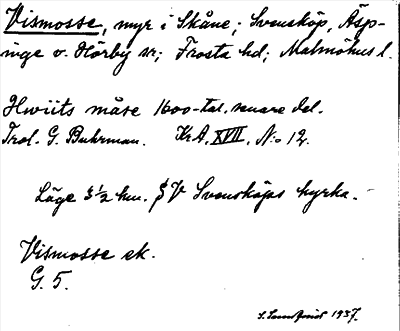 Vismosse, myr i Skåne; Svensköp, Äsp-
inge o. Hörby sn; Frosta hd; Malmöhus l.
Hwiits måse 1600-tal. senare del.
Trol. G. Buhrman. Kr.A. XVII, N:o 12.
Läge 3 1/2 km. V Svensköps kyrka.
Vismosse ek.
G. 5.
1937.